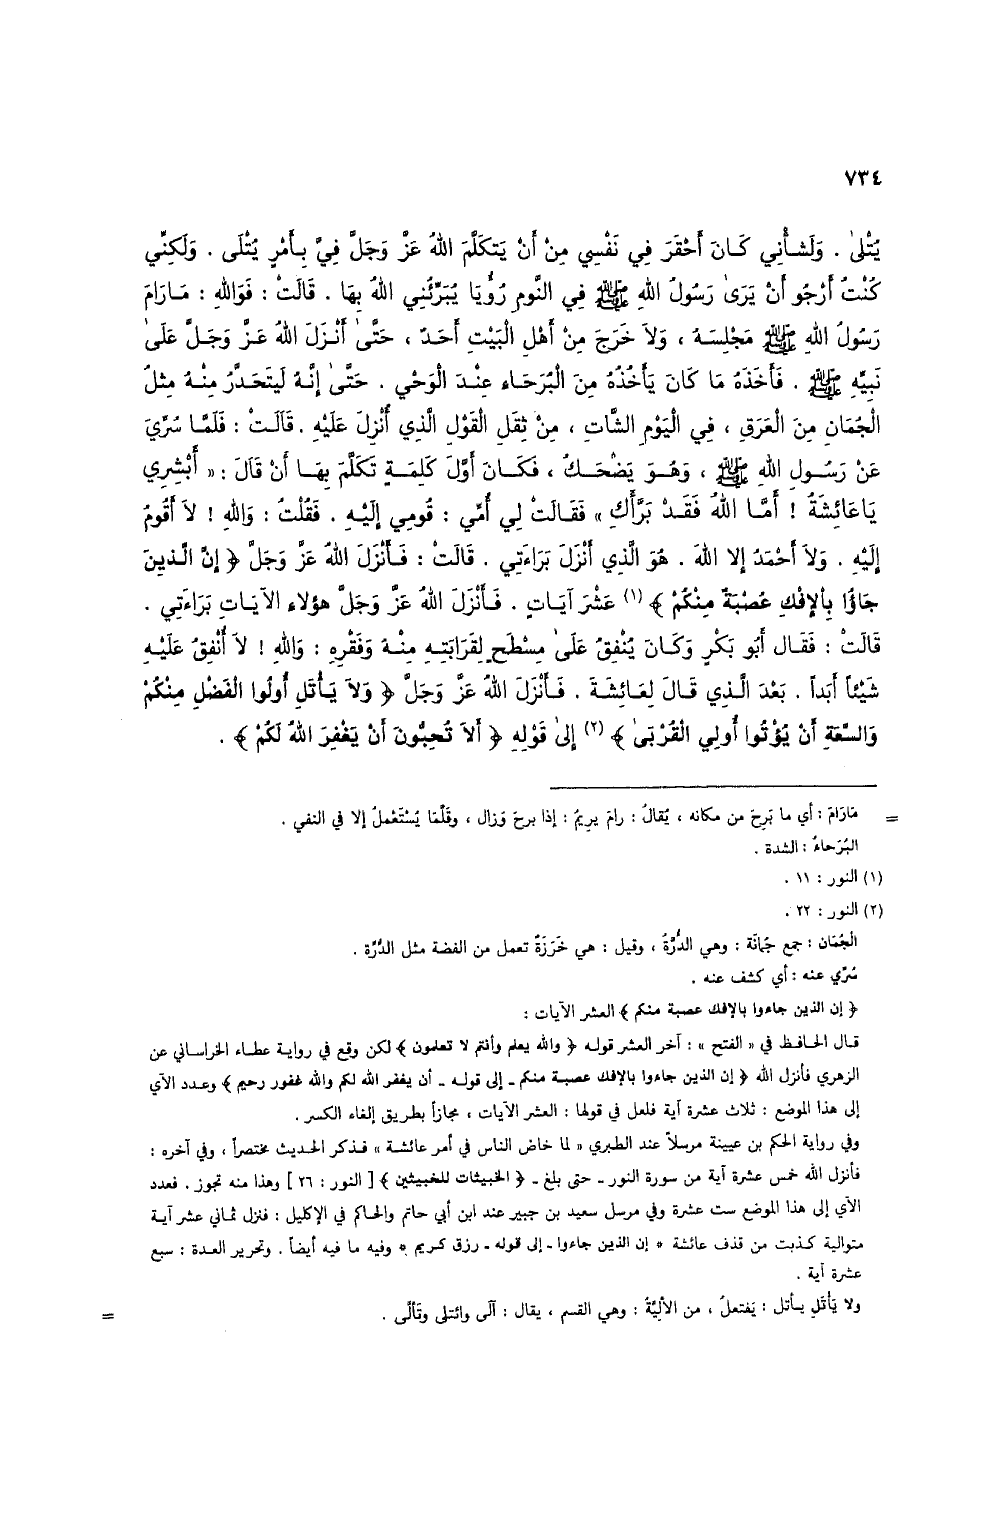 ٧٣٤
يُتْلىٰ . وَلَشأْنِي كَـانَ أَحْقَرَ فِي نَفْسِي مِنْ أَنْ يَتكَلَّمَ اللهُ عَزَّ وَجَلَّ فِيَّ بِـأَمْرٍ يُتْلَى . وَلَكِنِّي
كُنْتُ أَرْجُو أَنْ يَرَىٰ رَسُولُ اللهِ ﷺ فِي النَّومِ رُؤْيَا يُبَرِّئُنِي اللهُ بِهَا . قَالَتْ : فَوَاللهِ : مَـارَامَ
رَسُولُ اللهِ ﷺ مَجْلِسَهُ ، وَلَا خَرَجَ مِنْ أَهْلِ الْبَيْتِ أَحَدٌ ، حَتَّىٰ أَنْـزَلَ اللهُ عَـزَّ وَجَـلَّ عَلَىٰ
نَبِيِّهِ ﷺ . فَأَخَذَهُ مَا كَانَ يَأْخُذُهُ مِنَ الْبُرَحَاءِ عِنْـدَ الْوَحْي . حَتَّىٰ إِنَّـهُ لَيَتَحَدَّرُ مِنْـهُ مِثلُ
الْجُمَانِ مِنَ الْعَرَقِ ، فِي الْيَوْمِ الشَّاتِ ، مِنْ ثِقَلِ الْقَوْلِ الَّذِي أُنْزِلَ عَلَيْهِ . قَـالَتْ : فَلَمَّا سُرِّيَ
عَنْ رَسُـولِ اللهِ ﷺ ، وَهُـوَ يَضْحَـكُ ، فَكَـانَ أَوَّلَ كَلِمَـةٍ تَكَلَّمَ بِهَـا أَنْ قَالَ : « أَبْشِرِي
يَاعَائِشَةُ ! أَمَّـا اللهُ فَقَـدْ بَرَّأَكِ » فَقَـالَتْ لِي أُمِّي : قُومِي إِلَيْـهِ . فَقُلْتُ : وَاللهِ ! لاَ أَقُومُ
إِلَيْهِ . وَلاَ أَحْمَدُ إِلا اللهَ . هُوَ الَّذِي أَنْزَلَ بَرَاءَتِي . قَالَتْ : فَـأَنْزَلَ اللهُ عَزَّ وَجَلَّ ﴿ إِنَّ الَّـذِينَ
جَاؤُا بِالإِفْكِ عُصْبَةٌ مِنْكُمْ ﴾ (١) عَشْرَ آيَـاتٍ . فَـأَنْزَلَ اللهُ عَزَّ وَجَلَّ هؤلاء الآيَـاتِ بَرَاءَتِي .
قَالَتْ : فَقَـال أَبُو بَكْرٍ وَكَـانَ يُنْفِقُ عَلَىٰ مِسْطَحٍ لِقَرَابَتِـهِ مِنْـهُ وَفَقْرِهِ : وَاللهِ ! لاَ أُنْفِقُ عَلَيْـهِ
شَيْئاً أَبَداً . بَعْدَ الَّـذِي قَـالَ لِعَـائِشَةَ . فَـأَنْزَلَ اللهُ عَزَّ وَجَلَّ ﴿ وَلاَ يَـأْتَلِ أُولُوا الْفَضْلِ مِنْكُمْ
وَالسَّعَةِ أَنْ يُؤْتُوا أُولِي الْقُرْبَىٰ ﴾ (٢) إِلَىٰ قَوْلِهِ ﴿ أَلاَ تُحِبُّونَ أَنْ يَغْفِرَ اللهُ لَكُمْ ﴾ .
= مَارَامَ : أي ما بَرِحَ من مكانه ، يُقالُ : رامَ يريمُ : إذا برحَ وَزال ، وقَلَّمَا يُسْتَعْملُ إلا في النفي .
البُرَحاءُ : الشدة .
(١) النور : ١١ .
(٢) النور : ٢٢ .
الجُمَان : جمع جُمَانَة : وهي الدُّرَّةُ ، وقيل : هي خَرَزَةٌ تعمل من الفضة مثل الدُّرَّة .
سُرِّي عنه : أي كشف عنه .
﴿ إن الذين جاءوا بالإفك عصبة منكم ﴾ العشر الآيات :
قـال الحـافظ في « الفتح » : آخر العشر قولـه ﴿ والله يعلم وأنتم لا تعلمون ﴾ لكن وقع في روايـة عطـاء الخراساني عن
الزهري فأنزل الله ﴿ إن الذين جاءوا بالإفك عصبـة منكم ـ إلى قولـه ـ أن يغفر الله لكم والله غفور رحيم ﴾ وعدد الآي
إلى هذا الموضع : ثلاث عشرة آية فلعل في قولها : العشر الآيات ، مجازاً بطريق إلغاء الكسر .
وفي رواية الحكم بن عيينة مرسلاً عند الطبري « لما خاض الناس في أمر عائشـة » فـذكر الحـديث مختصراً ، وفي آخره :
فأنزل الله خمس عشرة آية من سورة النور ـ حتى بلغ ـ ﴿ الخبيثات للخبيثين ﴾ [ النور : ٢٦ ] وهذا منه تجوز . فعدد
الآي إلى هذا الموضع ست عشرة وفي مرسل سعيد بن جبير عند ابن أبي حاتم والحاكم في الإكليل : فنزل ثماني عشر آيـة
متوالية كذبت من قذف عائشة « إن الذين جاءوا ـ إلى قوله ـ رزق كريم » وفيه ما فيه أيضاً . وتحرير العدة : سبع
عشرة آية .
ولا يَأْتَلِ يـأتل : يَفتعلُ ، من الألِيَّةُ : وهي القسم ، يقال : آلى وائتلى وتَألَّى .
=